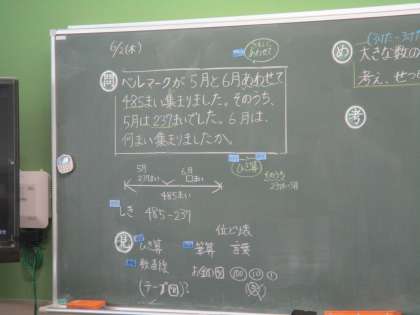 6/2(木)
あわせて
問
ベルマークが5月と6月あわせて
485まい集まりました。そのうち、
5月は237まいでした。6月は、
何まい集まりましたか。
ひき算
そのうち
5月 6月
237まい □まい
485まい
しき 485-237
見
ひき算 筆算 位どり表
言葉
数直線 お金の図 100 10 1
(テープ図)?
め
大きな数の
考え、せつ
考